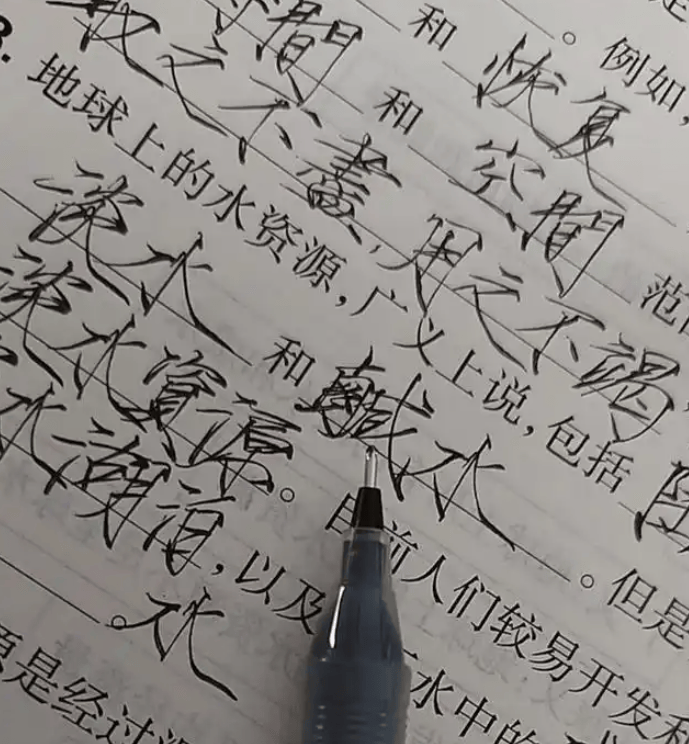 。例如,
和 恢复
時間 和 空間 范
取之不盡,用之不竭
地球上的水资源,广义上说,包括
淡水 和 鹹水 。但是
淡水資源。目前人们较易开发和
水湖泊,以及 水中的
。水
是经过